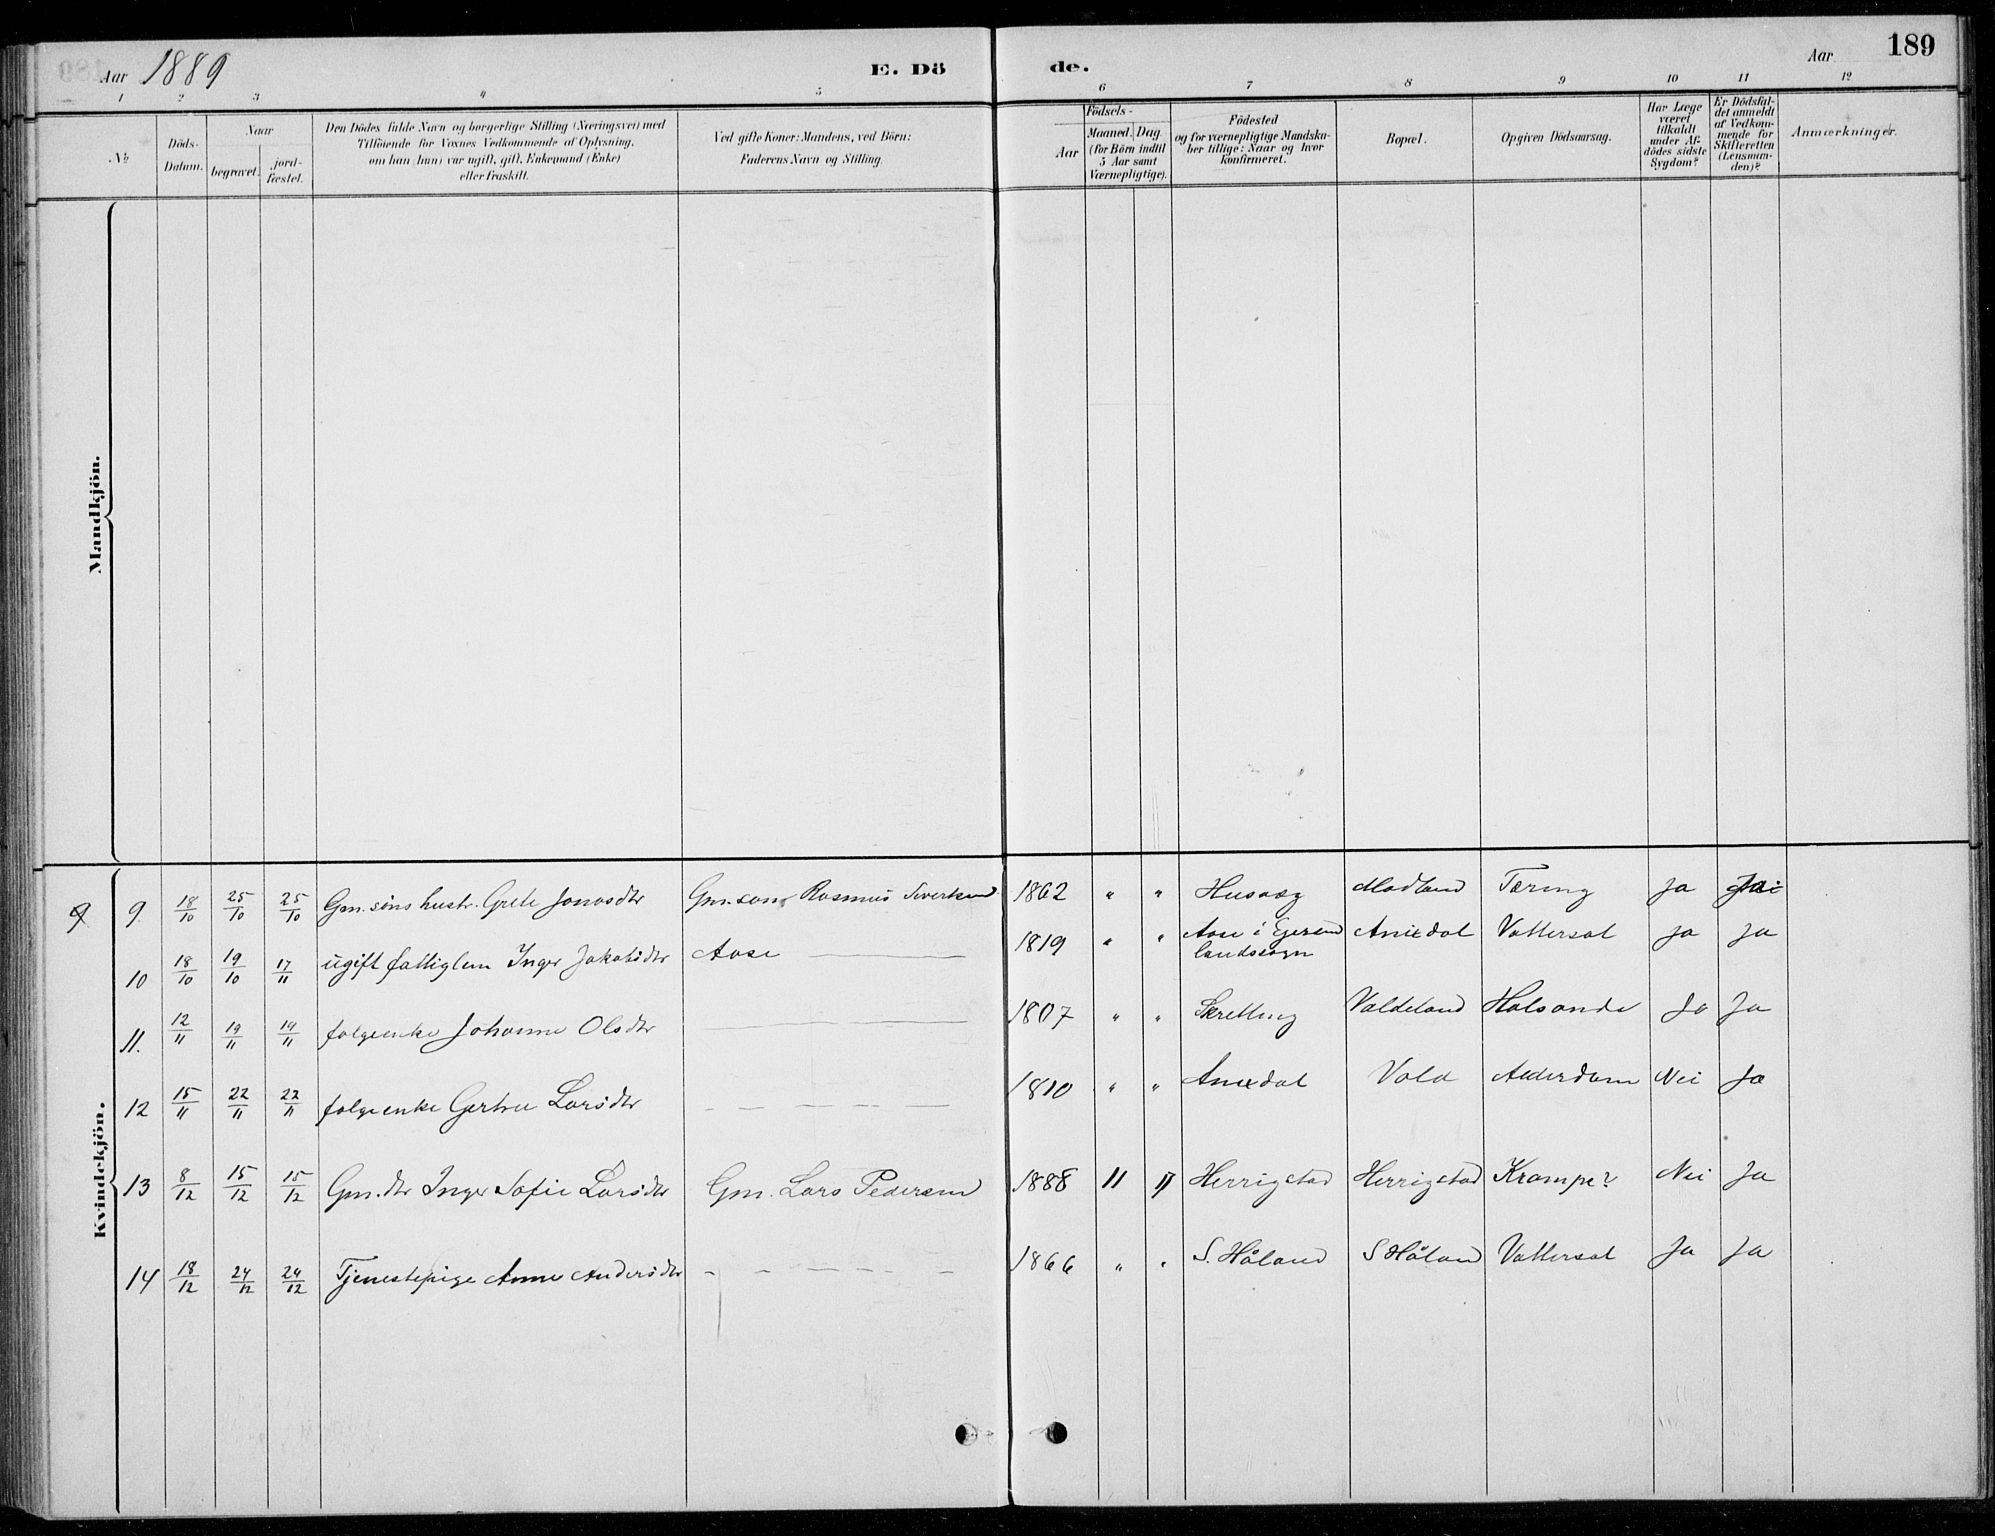 Aar 1889 E. Dö de. Aar 189
1 2 3 4 5 6 7 8 9 10 11 12
No
Döds-
Datum.
Naar
begravet.
jord-
fæstet.
Den Dödes fulde Navn og borgerlige Stilling (Næringsvei) med
Tilföiende för Voxnes Vedkommende af Oplysning,
om han (hun) var ugift, gift, Enkemand (Enke)
eller fraskilt.
Ved gifte Koner: Mandens, ved Börn:
Faderens Navn og Stilling.
Födsels-
Aar
Maaned. Dag
(for Börn indtil
5 Aar samt
Værnepligtige).
Födested
og for værnepligtige Mandska-
ber tillige: Naar og hvor
konfirmeret.
Bopæl.
Opgiven Dödsaarsag.
Har Læge
været
tilkaldt
under Af-
dödes sidste
Sygdom?
Er Dödsfal-
det anmeldt
af Vedkom-
mende for
Skifteretten
(Lensman-
den)?
Anmærkninger.
Mandkjön.
Kvindekjön.
9 9. 18/10 25/10 25/10 Gm. söns hustr. Grete Jonasdtr Gm. søn Rasmus Sivertsen 1862 " " Husaas Madland Tæring Ja Ja
10 18/10 19/10 17/11 ugift fattiglem Inger Jakobsdtr Aase 1819 " " Aase i Egersund
landssogn Aniksdal Vattersot Ja Ja
11. 12/11 19/11 19/11 folgeenke Johanne Olsdtr 1807 " " Skretting Valdeland Halsonde Ja Ja
12 15/11 22/11 22/11 folgeenke Gertrue Larsdtr 1810 " " Aniksdal Vold Alderdom Nei Ja
13 8/12 15/12 15/12 Gm. dtr Inger Sofie Larsdtr Gm. Lars Pedersen 1888 11 17 Herrigstad Herrigstad Krampe? Nei Ja
14 18/12 24/12 24/12 Tjenestepige Anne Andersdtr 1866 " " S. Håland S Håland Vattersot Ja Ja